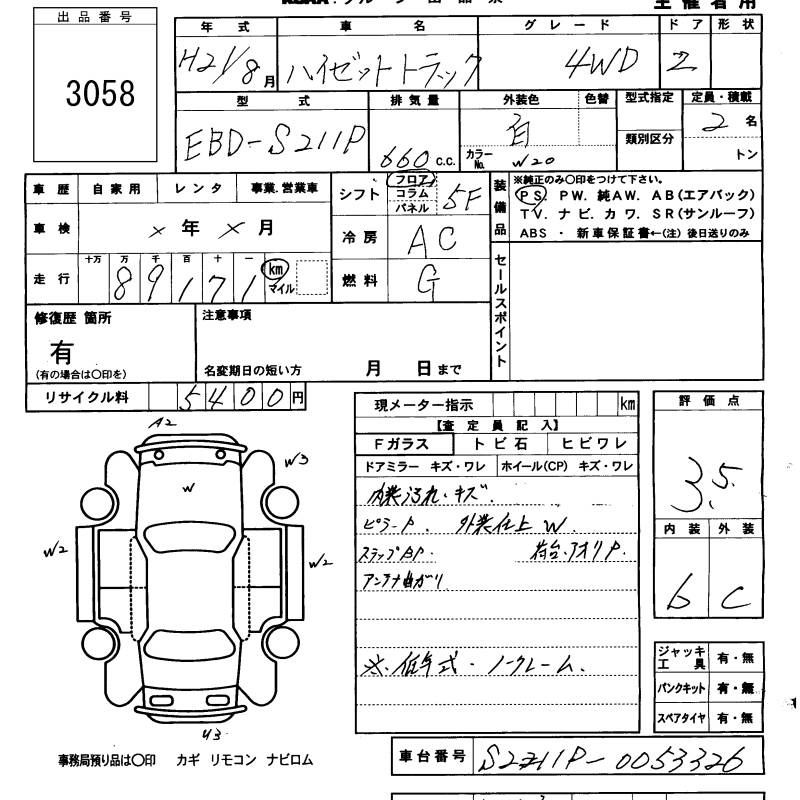 出品番号
3058
主催者用
年式 車名 グレード ドア 形状
H21/8月 ハイゼットトラック 4WD 2
型式 排気量 外装色 色替 型式指定 定員・積載
EBD-S211P 660c.c. 白 カラーNo. W20 類別区分 2名
トン
車歴 自家用 レンタ 事業.営業車
シフト フロア コラム パネル 5F
装備品
※純正のみ〇印をつけて下さい。
PS. PW. 純AW. AB(エアバック)
TV. ナビ. カワ. SR(サンルーフ)
ABS ・ 新車保証書←(注) 後日送りのみ
車検 ×年×月
冷房 AC
走行 十万 万 千 百 十 一
89171 km マイル
燃料 G
セールスポイント
修復歴 箇所
有
(有の場合は〇印を)
注意事項
名変期日の短い方 月 日まで
リサイクル料 5400円
現メーター指示 km
【査定員記入】
Fガラス トビ石 ヒビワレ
ドアミラー キズ・ワレ ホイール(CP) キズ・ワレ
内装汚れ・キズ.
ピラーP. 外装仕上W.
ステップAP. 荷台.アオリP.
アンテナ曲ガリ
※.低年式・ノークレーム.
評価点
3.5
内装 外装
b C
ジャッキ工具 有・無
パンクキット 有・無
スペアタイヤ 有・無
A2
W3
W
W2
W2
U3
事務局預り品は〇印 カギ リモコン ナビロム
車台番号 S211P-0053326